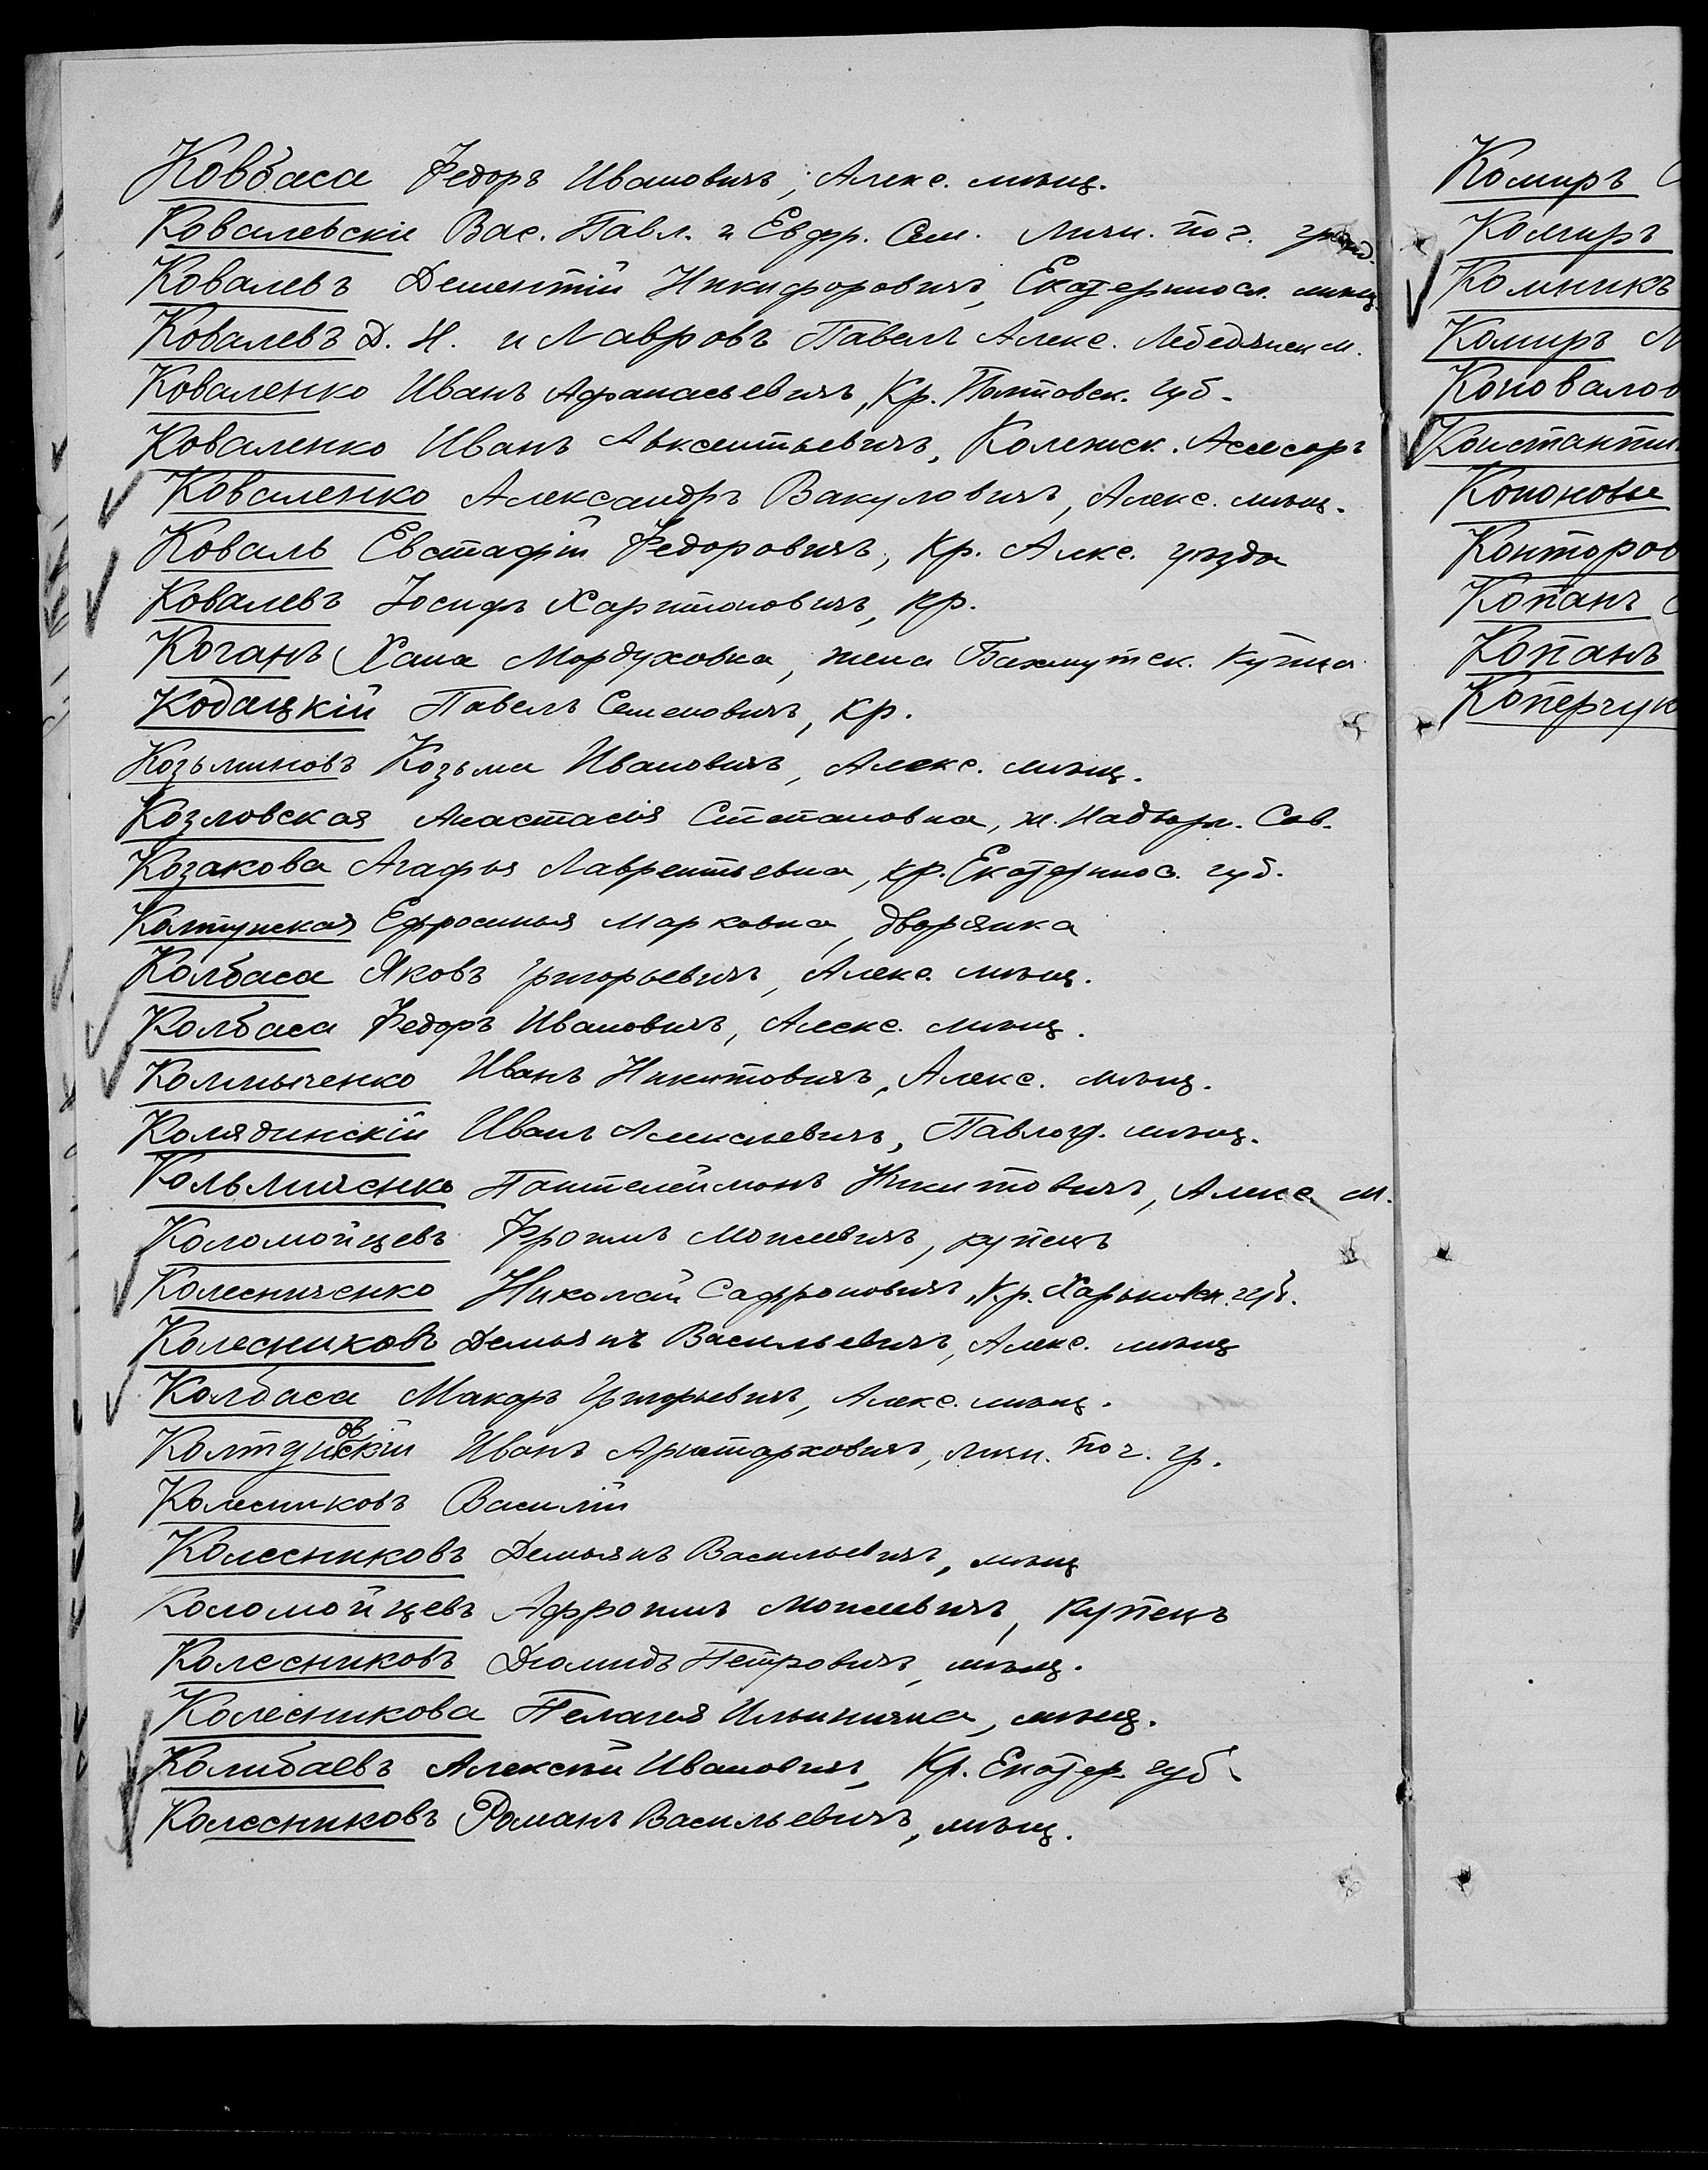 Ковбаса Федоръ Ивановичъ, Алекс. мѣщ.
Ковалевскіе Вас. Павл. и Евфр. Сем. Личн. поч. гражд.
Ковалевъ Дементій Никифоровичъ, Екатериносл. мѣщ.
Ковалевъ Д. Н. и Лавровъ Павелъ Алекс. Лебедянск м.
Коваленко Иванъ Афанасьевичъ, Кр. Полтовск. губ.
Коваленко Иванъ Авксентьевичъ, Колежск. Асесоръ
Коваленко Александръ Вакуловичъ, Алекс. мѣщ.
Коваль Евстафій Федоровичъ, Кр. Алкс. уѣзда
Ковалевъ Іосифъ Харитоновичъ, кр.
Коганъ Хана Мордуховна, жена Бахмутск. купца
Кодацкій Павелъ Семеновичъ, кр.
Козьминовъ Козьма Ивановичъ, Алекс. мѣщ.
Козловская Анастасія Степановна, ж. Надворн. Сов.
Козакова Агафья Лаврентьевна, кр. Екатеринос. губ.
Колтунская Ефросинья Марковна, дворянка
Колбаса Яковъ Григорьевичъ, Алекс. мѣщ.
Колбаса Федоръ Ивановичъ, Алекс. мѣщ.
Колмыченко Иванъ Никитовичъ, Алекс. мѣщ.
Колядинскій Иванъ Алексѣевичъ, Павлогр. мѣщ.
Кольмиченко Пантелеймонъ Никитовичъ, Алекс. м.
Коломойцевъ Фролъ Моисеевичъ, купецъ
Колесниченко Николай Сафроновичъ, Кр. Харьковск. губ.
Колесниковъ Демьянъ Васильевичъ, Алекс. мѣщ
Колбаса Макаръ Григорьевичъ, Алекс. мѣщ.
Колтуновскій Иванъ Аристарховичъ, личн. поч. гр.
Колесниковъ Василій
Колесниковъ Демьянъ Васильевичъ, мѣщ
Коломойцевъ Моисеевичъ, купецъ
Колесниковъ Діомидъ Петровичъ, мѣщ.
Колесникова Пелагея Ильинична, мѣщ.
Колибаевъ Алексѣй Ивановичъ, Кр. Екатер. губ.
Колесниковъ Романъ Васильевичъ, мѣщ.
Комиръ
Комиръ
Комникъ
Комиръ
Коновалов
Константин
Кононовы
Конторов
Копанъ
Копанъ
Коперчук